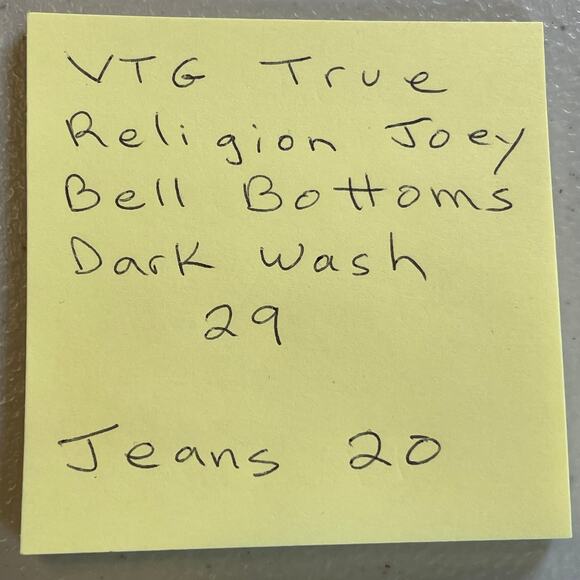 VTG True
Religion Joey
Bell Bottoms
Dark Wash
29
Jeans 20